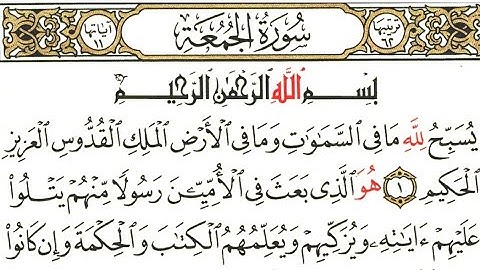 ترتيبها ٦٢ سُورَةُ الجُمُعَةِ آياتها ١١
بِسْمِ ٱللَّهِ ٱلرَّحْمَٰنِ ٱلرَّحِيمِ
يُسَبِّحُ لِلَّهِ مَا فِى ٱلسَّمَٰوَٰتِ وَمَا فِى ٱلْأَرْضِ ٱلْمَلِكِ ٱلْقُدُّوسِ ٱلْعَزِيزِ
ٱلْحَكِيمِ ١ هُوَ ٱلَّذِى بَعَثَ فِى ٱلْأُمِّيِّـۧنَ رَسُولًا مِّنْهُمْ يَتْلُوا۟
عَلَيْهِمْ ءَايَٰتِهِۦ وَيُزَكِّيهِمْ وَيُعَلِّمُهُمُ ٱلْكِتَٰبَ وَٱلْحِكْمَةَ وَإِن كَانُوا۟